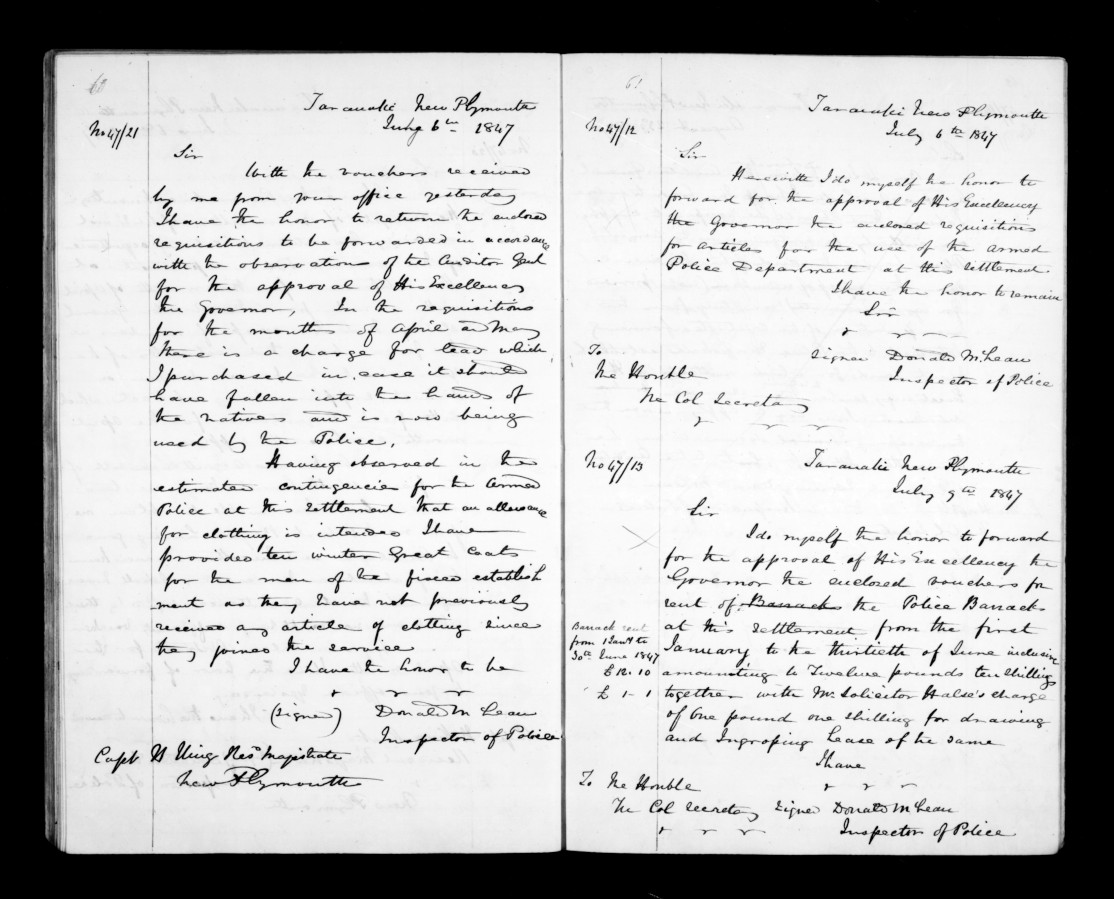 60
Taranaki New Plymouth
No 47/21
July 6th 1847
Sir
With the vouchers received
by me from your office yesterday
I have the honor to return the enclosed
requisitions to be forwarded in accordance
with the observations of the Auditor Genl
for the approval of His Excellency
the Governor, In the requisitions
for the months of April and May
there is a charge for lead which
I purchased in case it should
have fallen into the hands of
the natives and is now being
used by the Police.
Having observed in the
estimated contingencies for the Armed
Police at this settlement that an allowance
for clothing is intended I have
provided ten winter Great Coats
for the men of the fixed establish
ment as they have not previously
received any article of clothing since
they joined the service
I have the honor to be
(signed) Donald McLean
Inspector of Police
Capt H King Res Magistrate
New Plymouth
61
Taranaki New Plymouth
No 47/12
July 6th 1847
Sir
Herewith I do myself the honor to
forward for the approval of His Excellency
the Governor the enclosed requisitions
for articles for the use of the armed
Police Department at this settlement
I have the honor to remain
Sir
To
signed Donald McLean
The Honble
Inspector of Police
The Col Secretary
No 47/13
Taranaki New Plymouth
July 9th 1847
Sir
I do myself the honor to forward
for the approval of His Excellency the
Governor the enclosed vouchers for
rent of Barracks the Police Barracks
at this settlement from the first
Barrack rent
from 1 Jany to
30th June 1847
£12. 10
£ 1- 1
January to the thirtieth of June inclusive
amounting to Twelve pounds ten shillings
together with Mr Solicitor Halse's charge
of One pound one shilling for drawing
and Ingrossing Lease of the same
I have
To The Honble
The Col Secretary signed Donald McLean
Inspector of Police